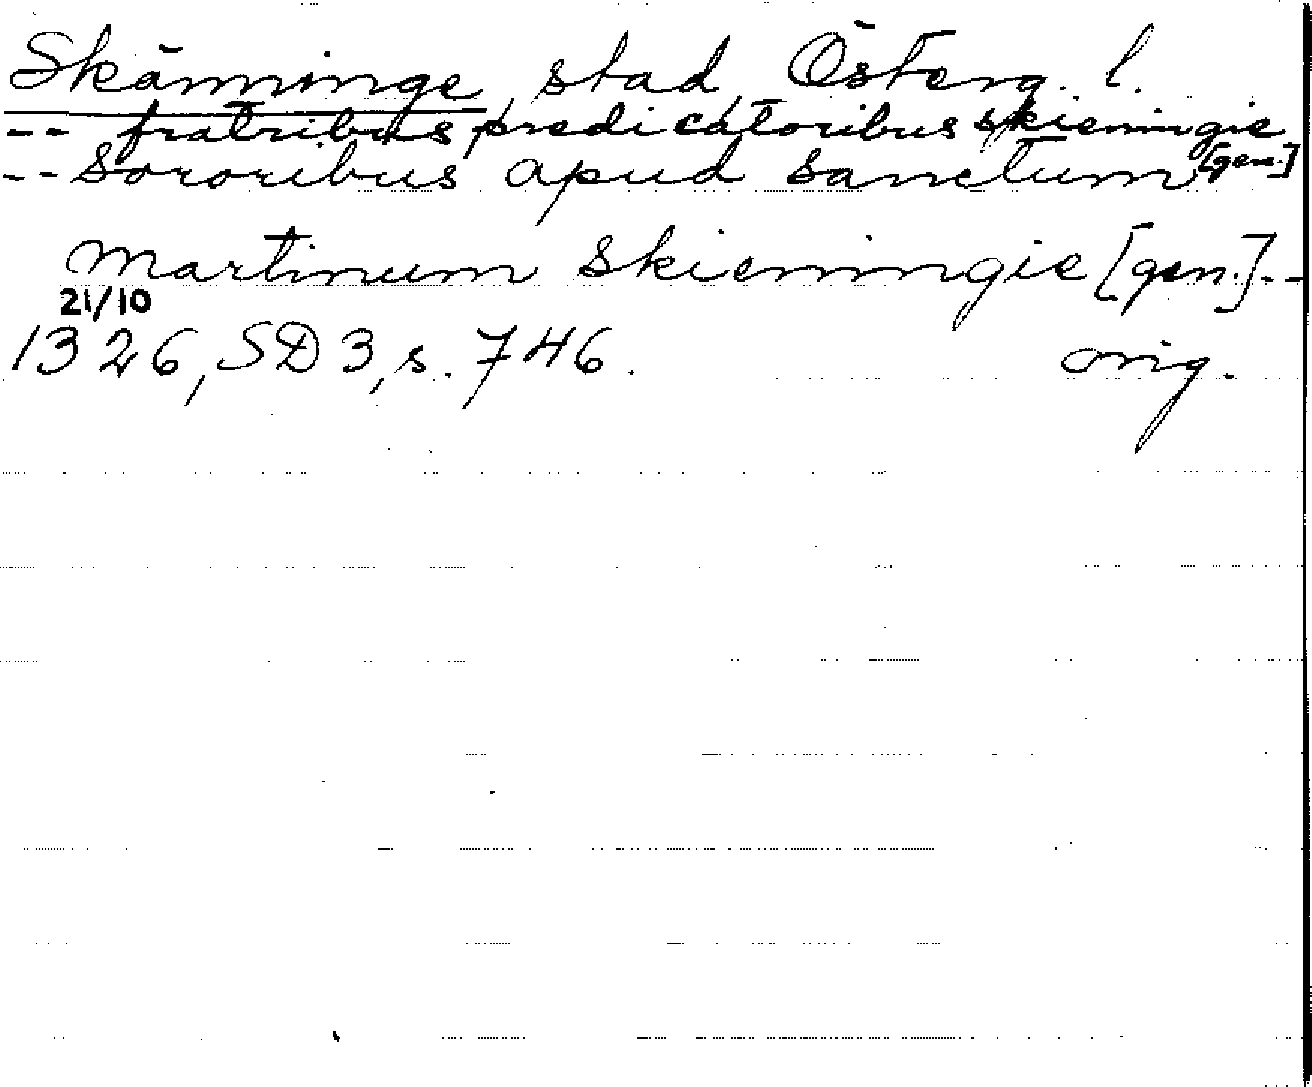 Skänninge, stad, Österg. l.
-- fratribus predicatoribus skieningie
-- Sororibus apud sanctum [gen.]
Martinum skieningie [gen.]--
21/10
1326, SD 3, s. 746. orig.